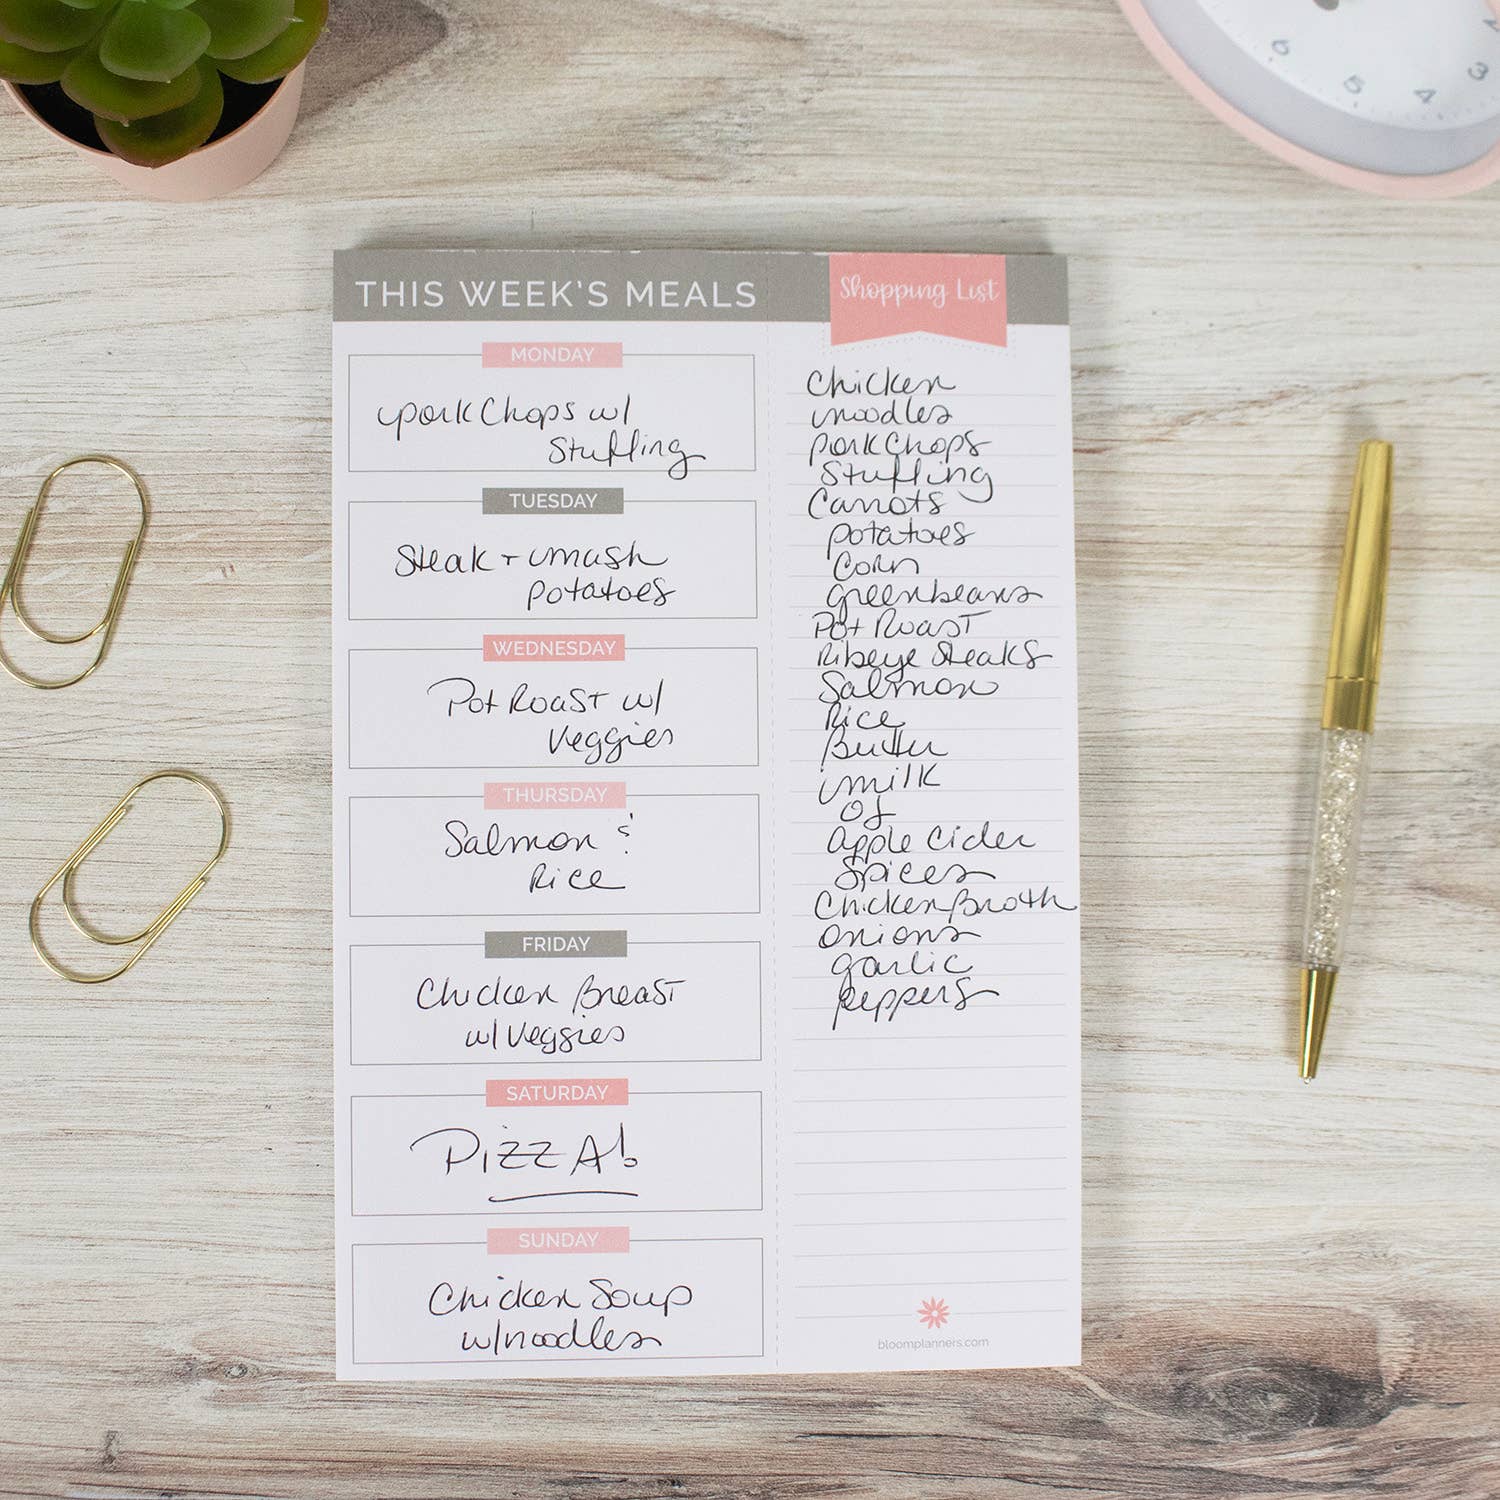 THIS WEEK'S MEALS
MONDAY
pork Chops w/
Stuffing
TUESDAY
Steak + mash
potatoes
WEDNESDAY
Pot Roast w/
Veggies
THURSDAY
Salmon &
Rice
FRIDAY
Chicken Breast
w/ Veggies
SATURDAY
PizzA!
SUNDAY
Chicken Soup
w/noodles
Shopping List
Chicken
noodles
pork Chops
Stuffing
Carrots
potatoes
Corn
greenbeans
Pot Roast
Ribeye Steaks
Salmon
Rice
Butter
milk
OJ
Apple Cider
Spices
Chicken Broth
onions
garlic
peppers
bloomplanners.com
6
5
4
3